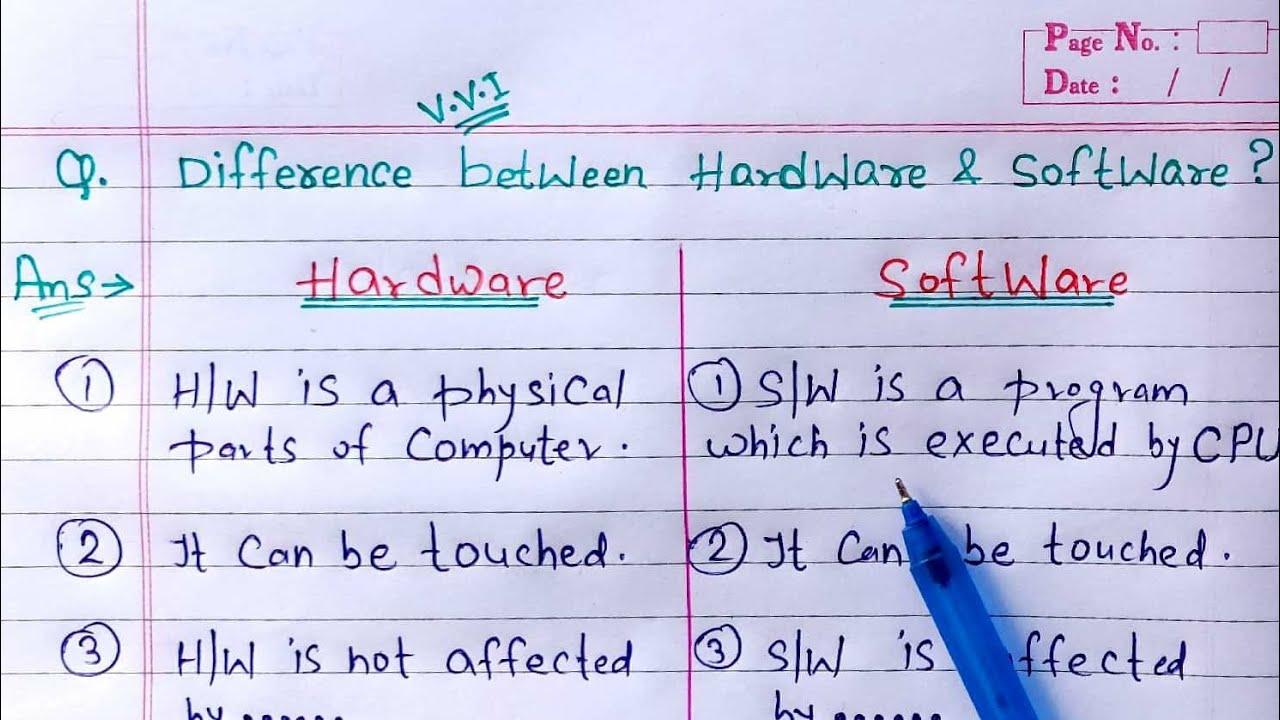 Page No. :
Date : / /
V.V.I
Q. Difference between Hardware & Software ?
Ans→ Hardware Software
① H/W is a physical
parts of Computer.
① S/W is a program
which is executed by CPU
② It can be touched.
② It can be touched.
③ H/W is not affected
by ......
③ S/W is affected
by ......